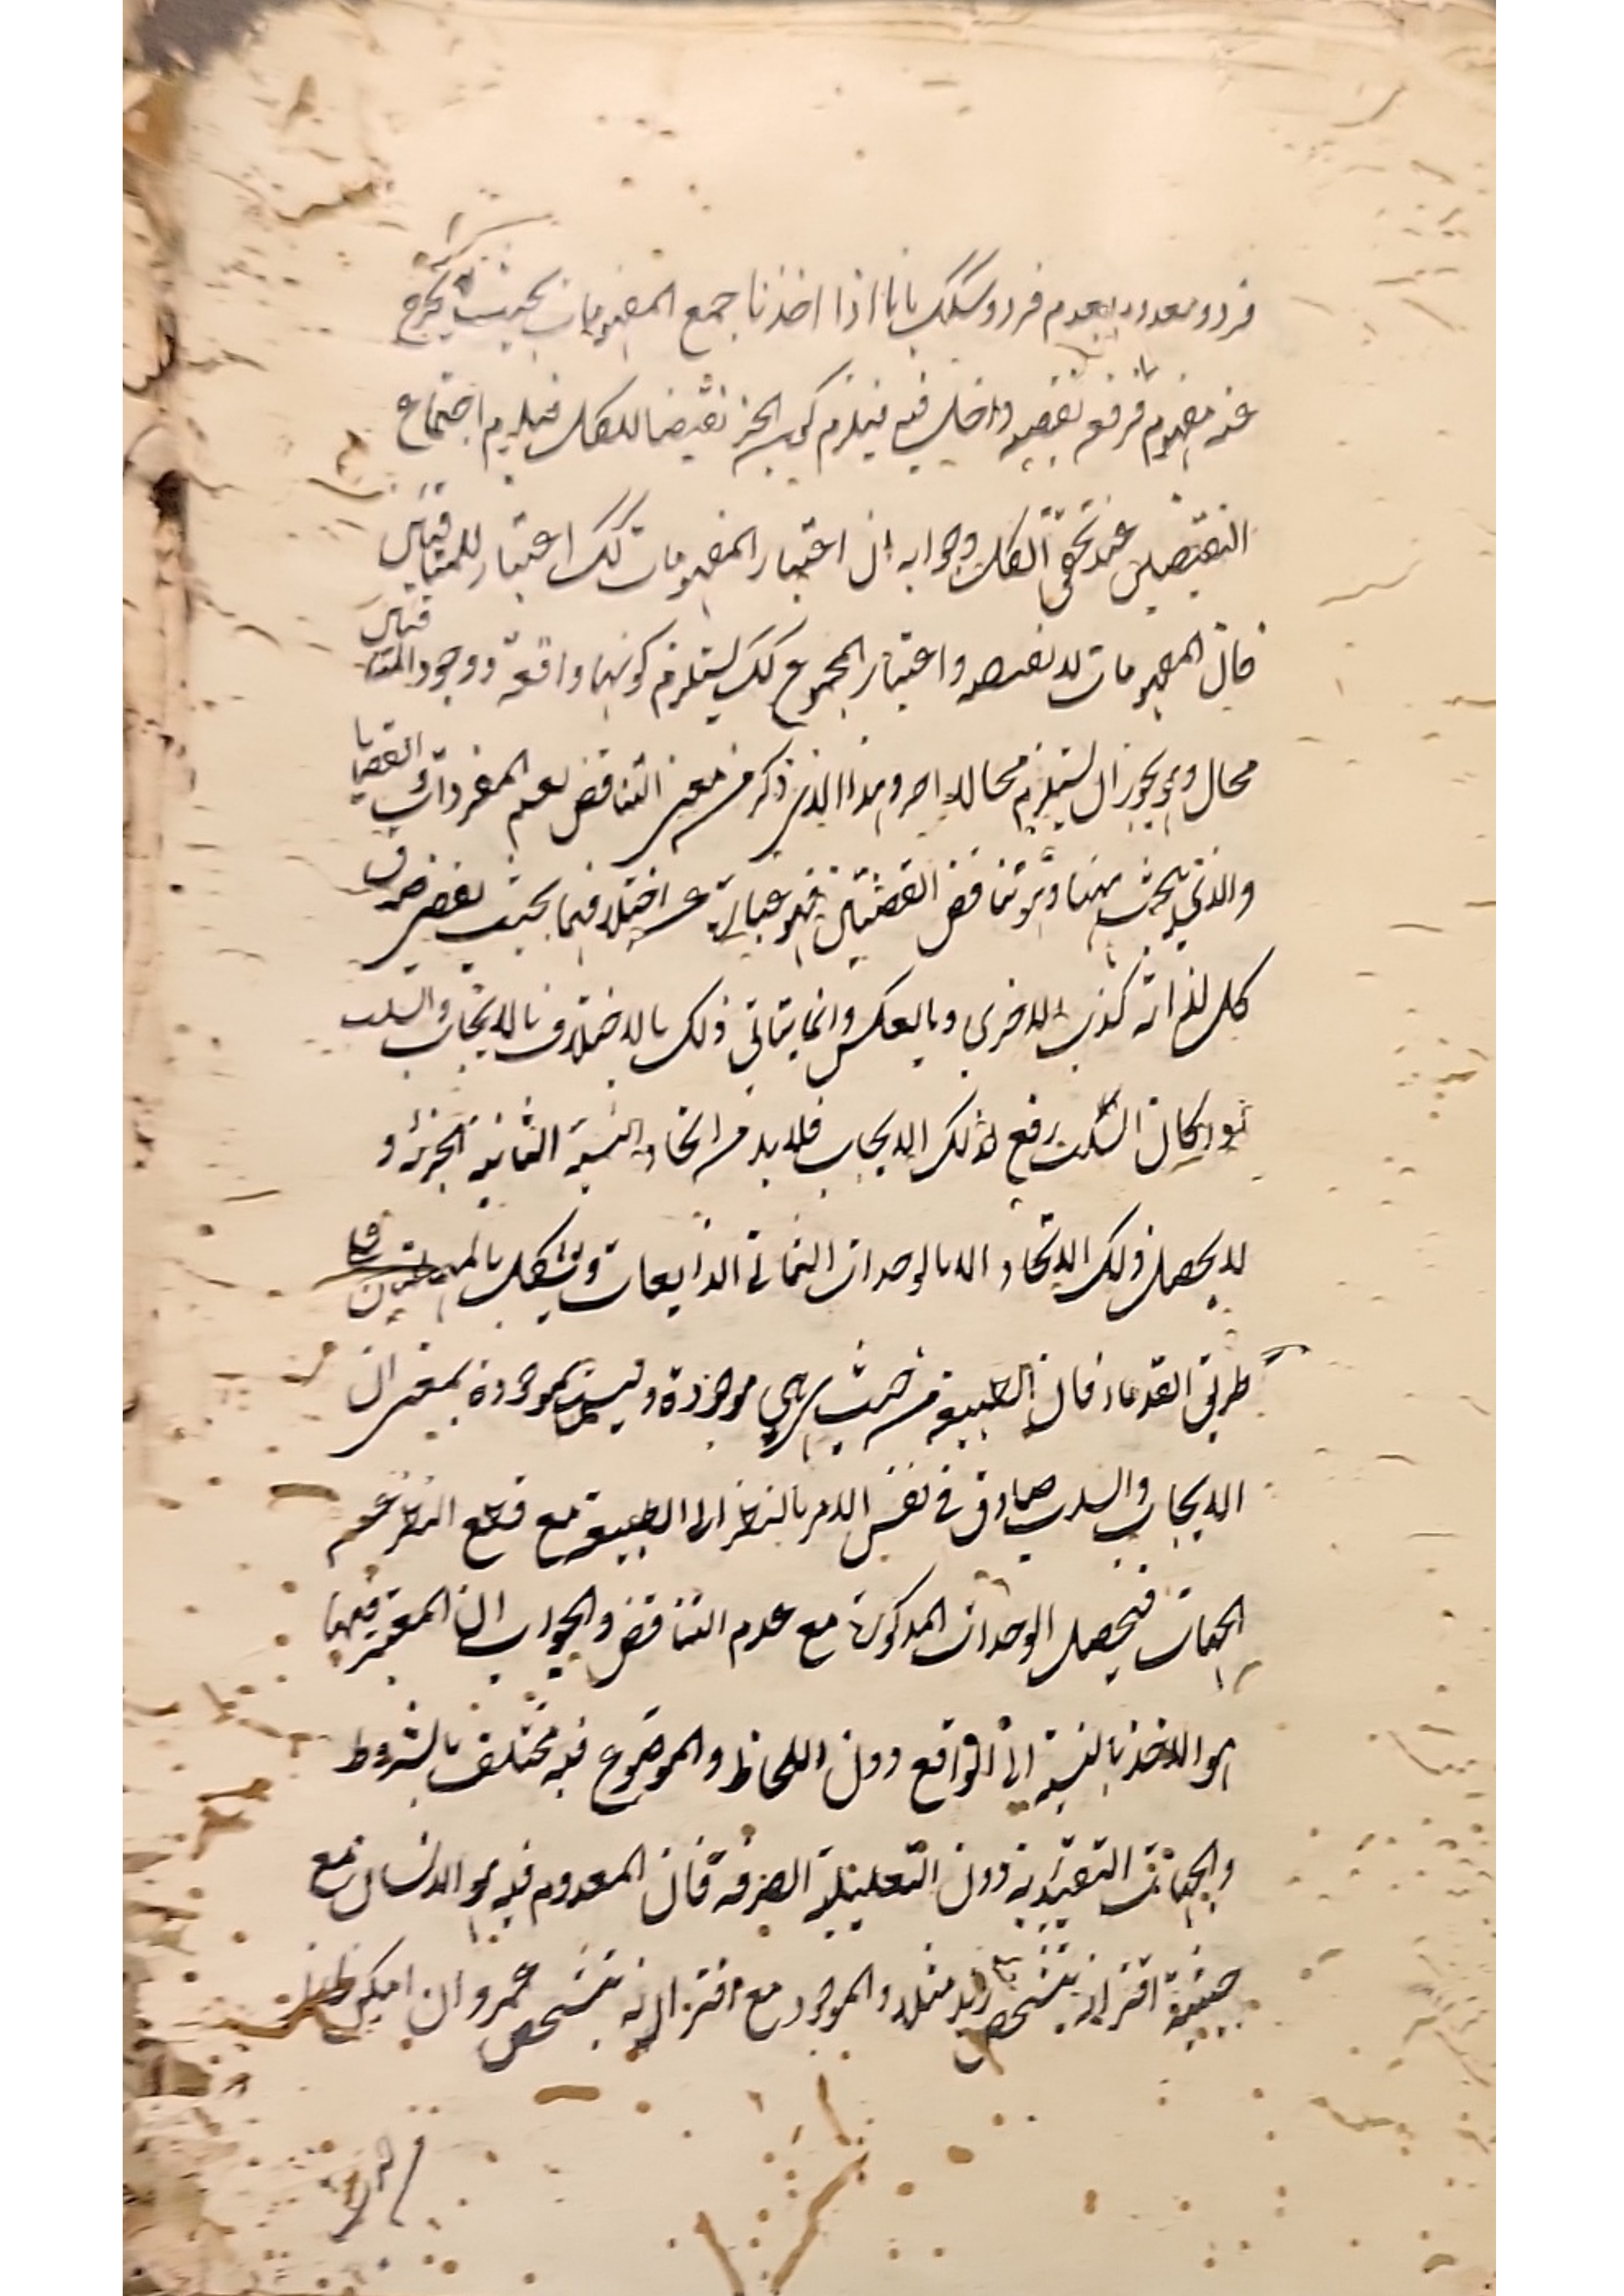 فرد ومعدوم بعدم فرد وشكك بانا اذا اخذنا جميع المفهومات بحيث لا يخرج
عنه مفهوم فرفع نقيضه داخل فيه فيلزم كون الجزء نقيضا للكل فيلزم اجتماع
النقيضين عند تحقق الكل وجوابه ان اعتبار المفهومات كك اعتبار للمتنافيين
فان المفهومات لا واعتبار المجموع كك يستلزم كونها واقعة ووجود المتنافيين
محال وهو يجوز ان يستلزم محالا اخر وهذا الذي ذكر من معنى التناقض يعم المفردات والقضايا
والذي يبحث ههنا وهو تناقض القضيتين فهو عبارة عن اختلافهما بحيث يقتضى صدق
كل لذاته كذب الاخرى وبالعكس وانما يتاتى ذلك بالاختلاف بالايجاب والسلب
ولو كان السلب رفع لذلك الايجاب فلابد من اتحاد النسبة الجزئية و
لا يحصل ذلك الاتحاد الا بالوحدات الثمانى الذايعات ويشكل على
طريق القدماء فان الطبيعة من حيث هي موجودة وليست بموجودة بمعنى ان
الايجاب والسلب صادق في نفس الامر بالنظر الى الطبيعة مع قطع النظر عن
الجهات فيحصل الوحدات المذكورة مع عدم التناقض والجواب ان المعتبر فيها
هو الاخذ بالنسبة الى الواقع دون اللحاظ والموضوع فيه مختلف بالشروط
والجهات التقييدية دون التعليلية الصرفة فان المعدوم فيه هو الانسان مع
حيثية اقترانه بتشخص زيد مثلا والموجود مع اقترانه بتشخص عمرو ان امكن